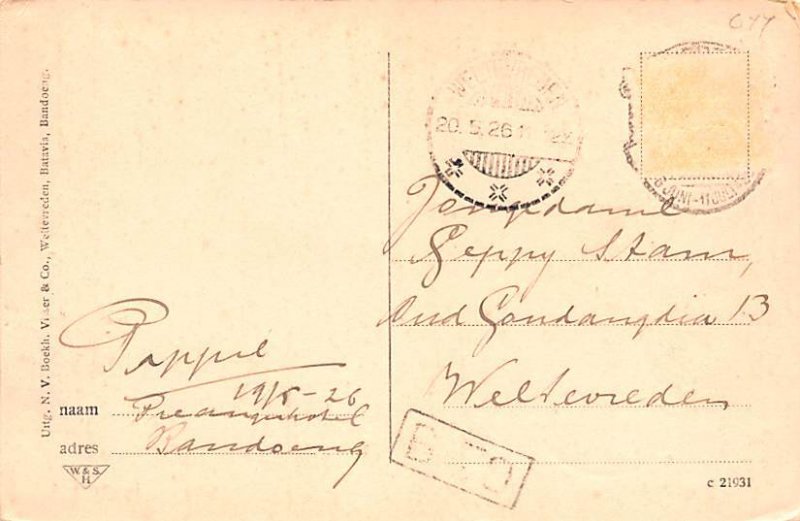 c77
Uitg. N. V. Boekh. Visser & Co., Weltevreden, Batavia, Bandoeng.
WELTEVREDEN
20.5.26
JUNI-11
Jongedame
Geppy Stam,
Oud Gondangdia 13
Weltevreden
Pappie
19/5-26
naam Preangerhotel
adres Bandoeng
W & S
H
c 21931